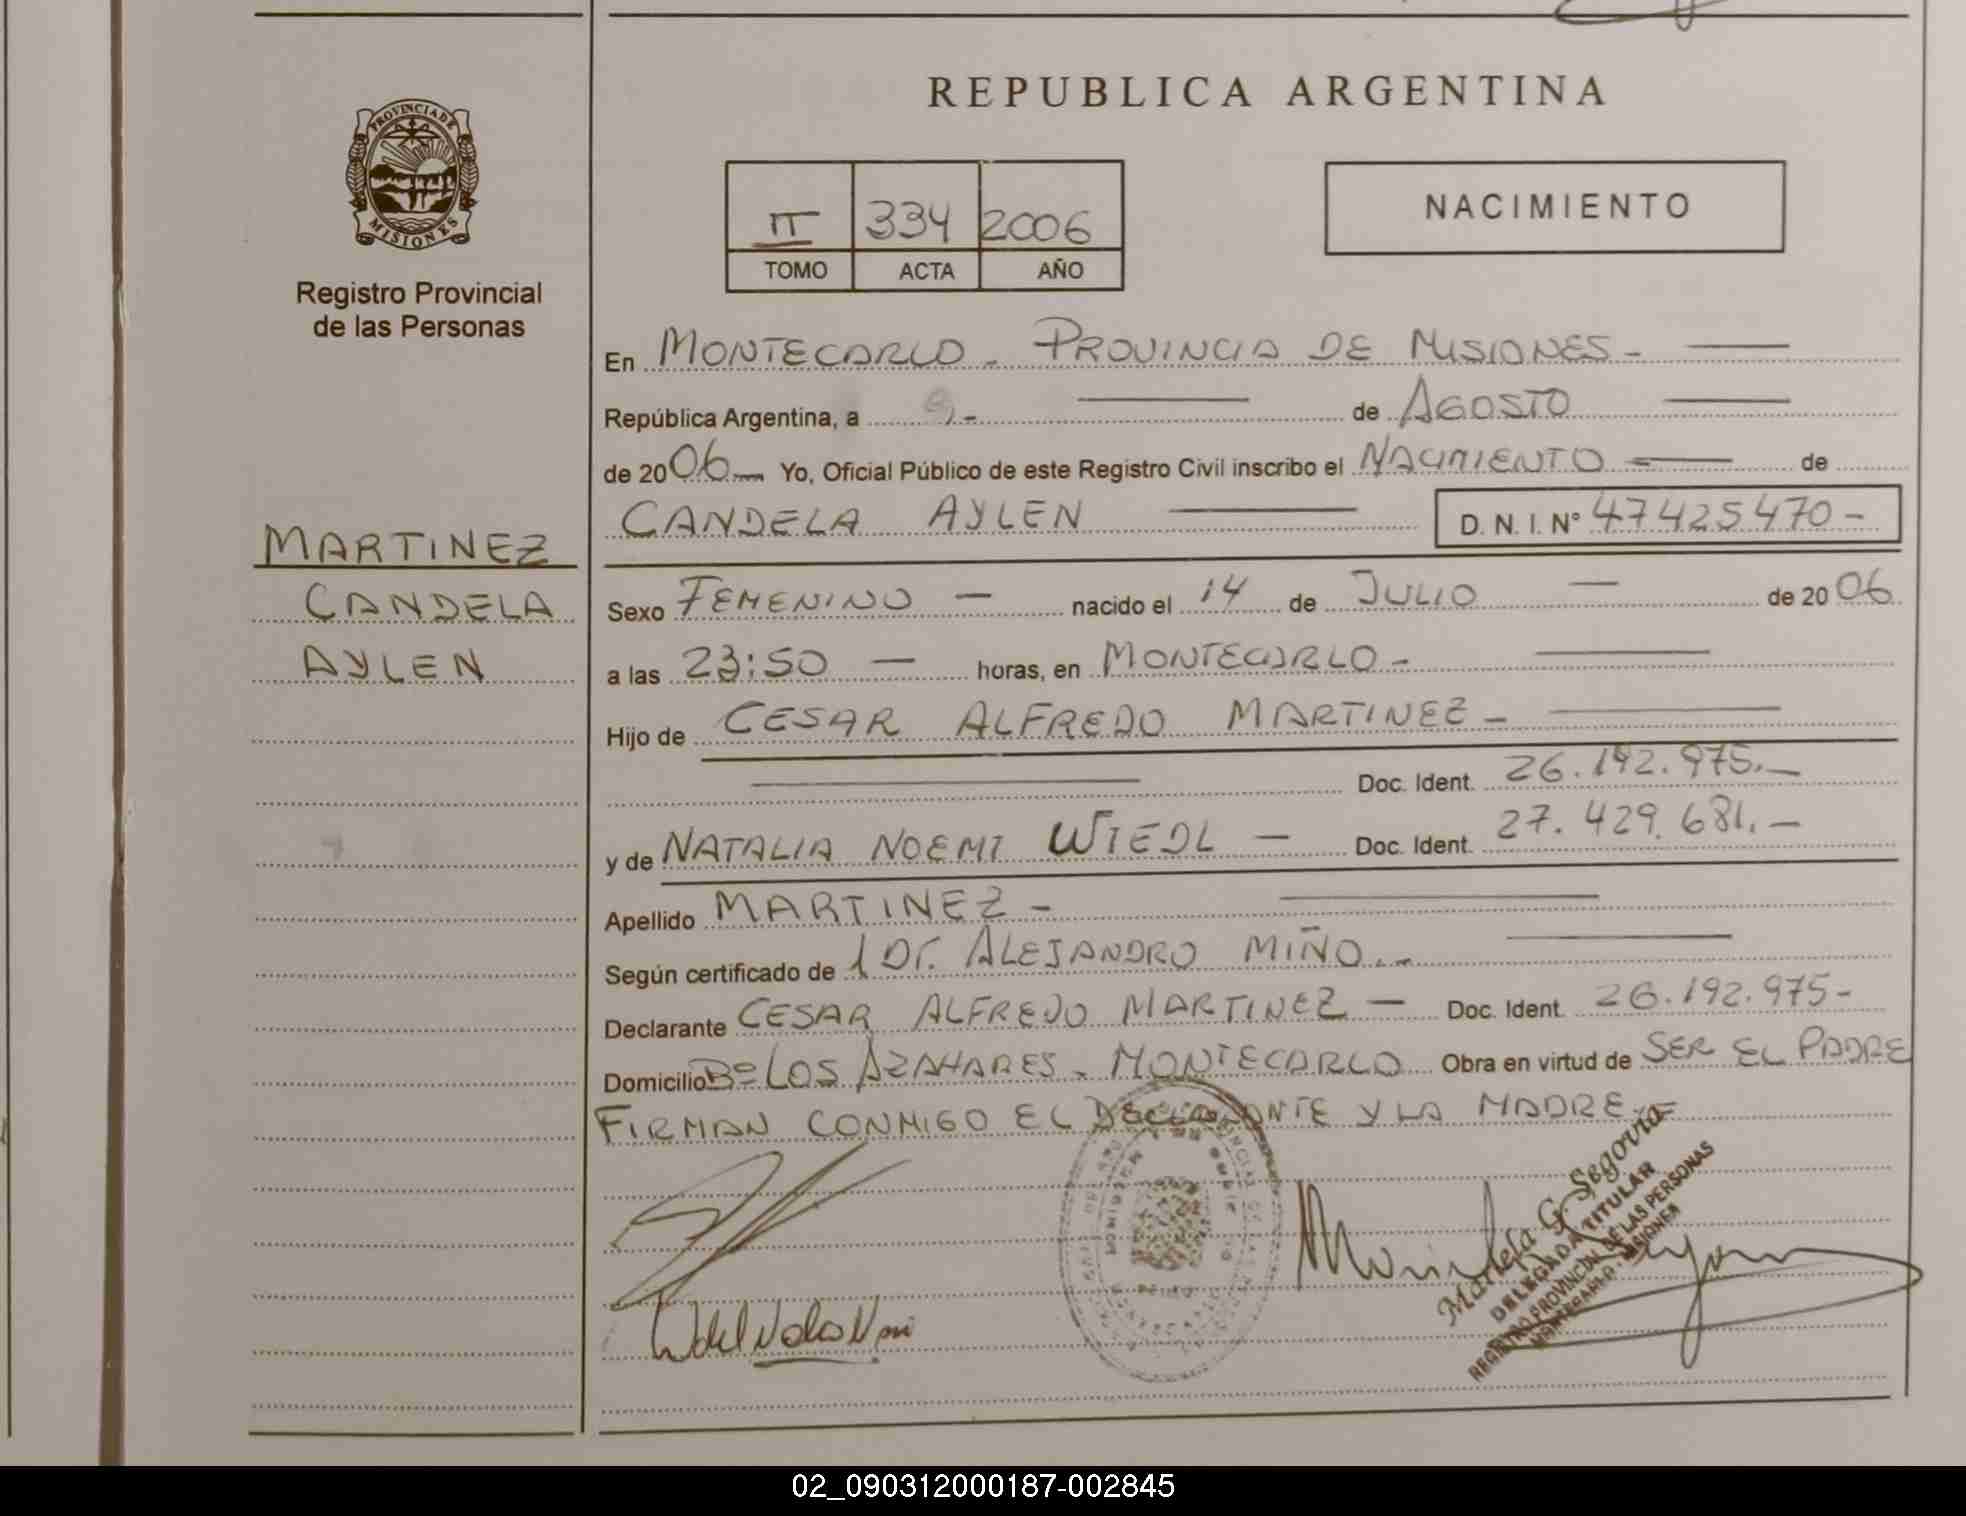 REPUBLICA ARGENTINA
PROVINCIA DE
MISIONES
Registro Provincial
de las Personas
II 334 2006
TOMO ACTA AÑO
NACIMIENTO
En MONTECARLO - PROVINCIA DE MISIONES -
República Argentina, a de AGOSTO
de 2006 Yo, Oficial Público de este Registro Civil inscribo el NACIMIENTO de
CANDELA AYLEN D. N. I. N° 47425470 -
MARTINEZ
CANDELA
AYLEN
Sexo FEMENINO - nacido el 14 de JULIO de 2006
a las 23:50 horas, en MONTECARLO -
Hijo de CESAR ALFREDO MARTINEZ -
Doc. Ident. 26.192.975. -
y de NATALIA NOEMI WIEDL - Doc. Ident. 27.429.681. -
Apellido MARTINEZ -
Según certificado de Dr. ALEJANDRO MIÑO. -
Declarante CESAR ALFREDO MARTINEZ - Doc. Ident. 26.192.975 -
Domicilio Bº LOS AZAHARES - MONTECARLO Obra en virtud de SER EL PADRE
FIRMAN CONMIGO EL DECLARANTE Y LA MADRE
Mariela G. Segovia
DELEGADA TITULAR
REGISTRO PROVINCIAL DE LAS PERSONAS
MONTECARLO - MISIONES
02_090312000187-002845